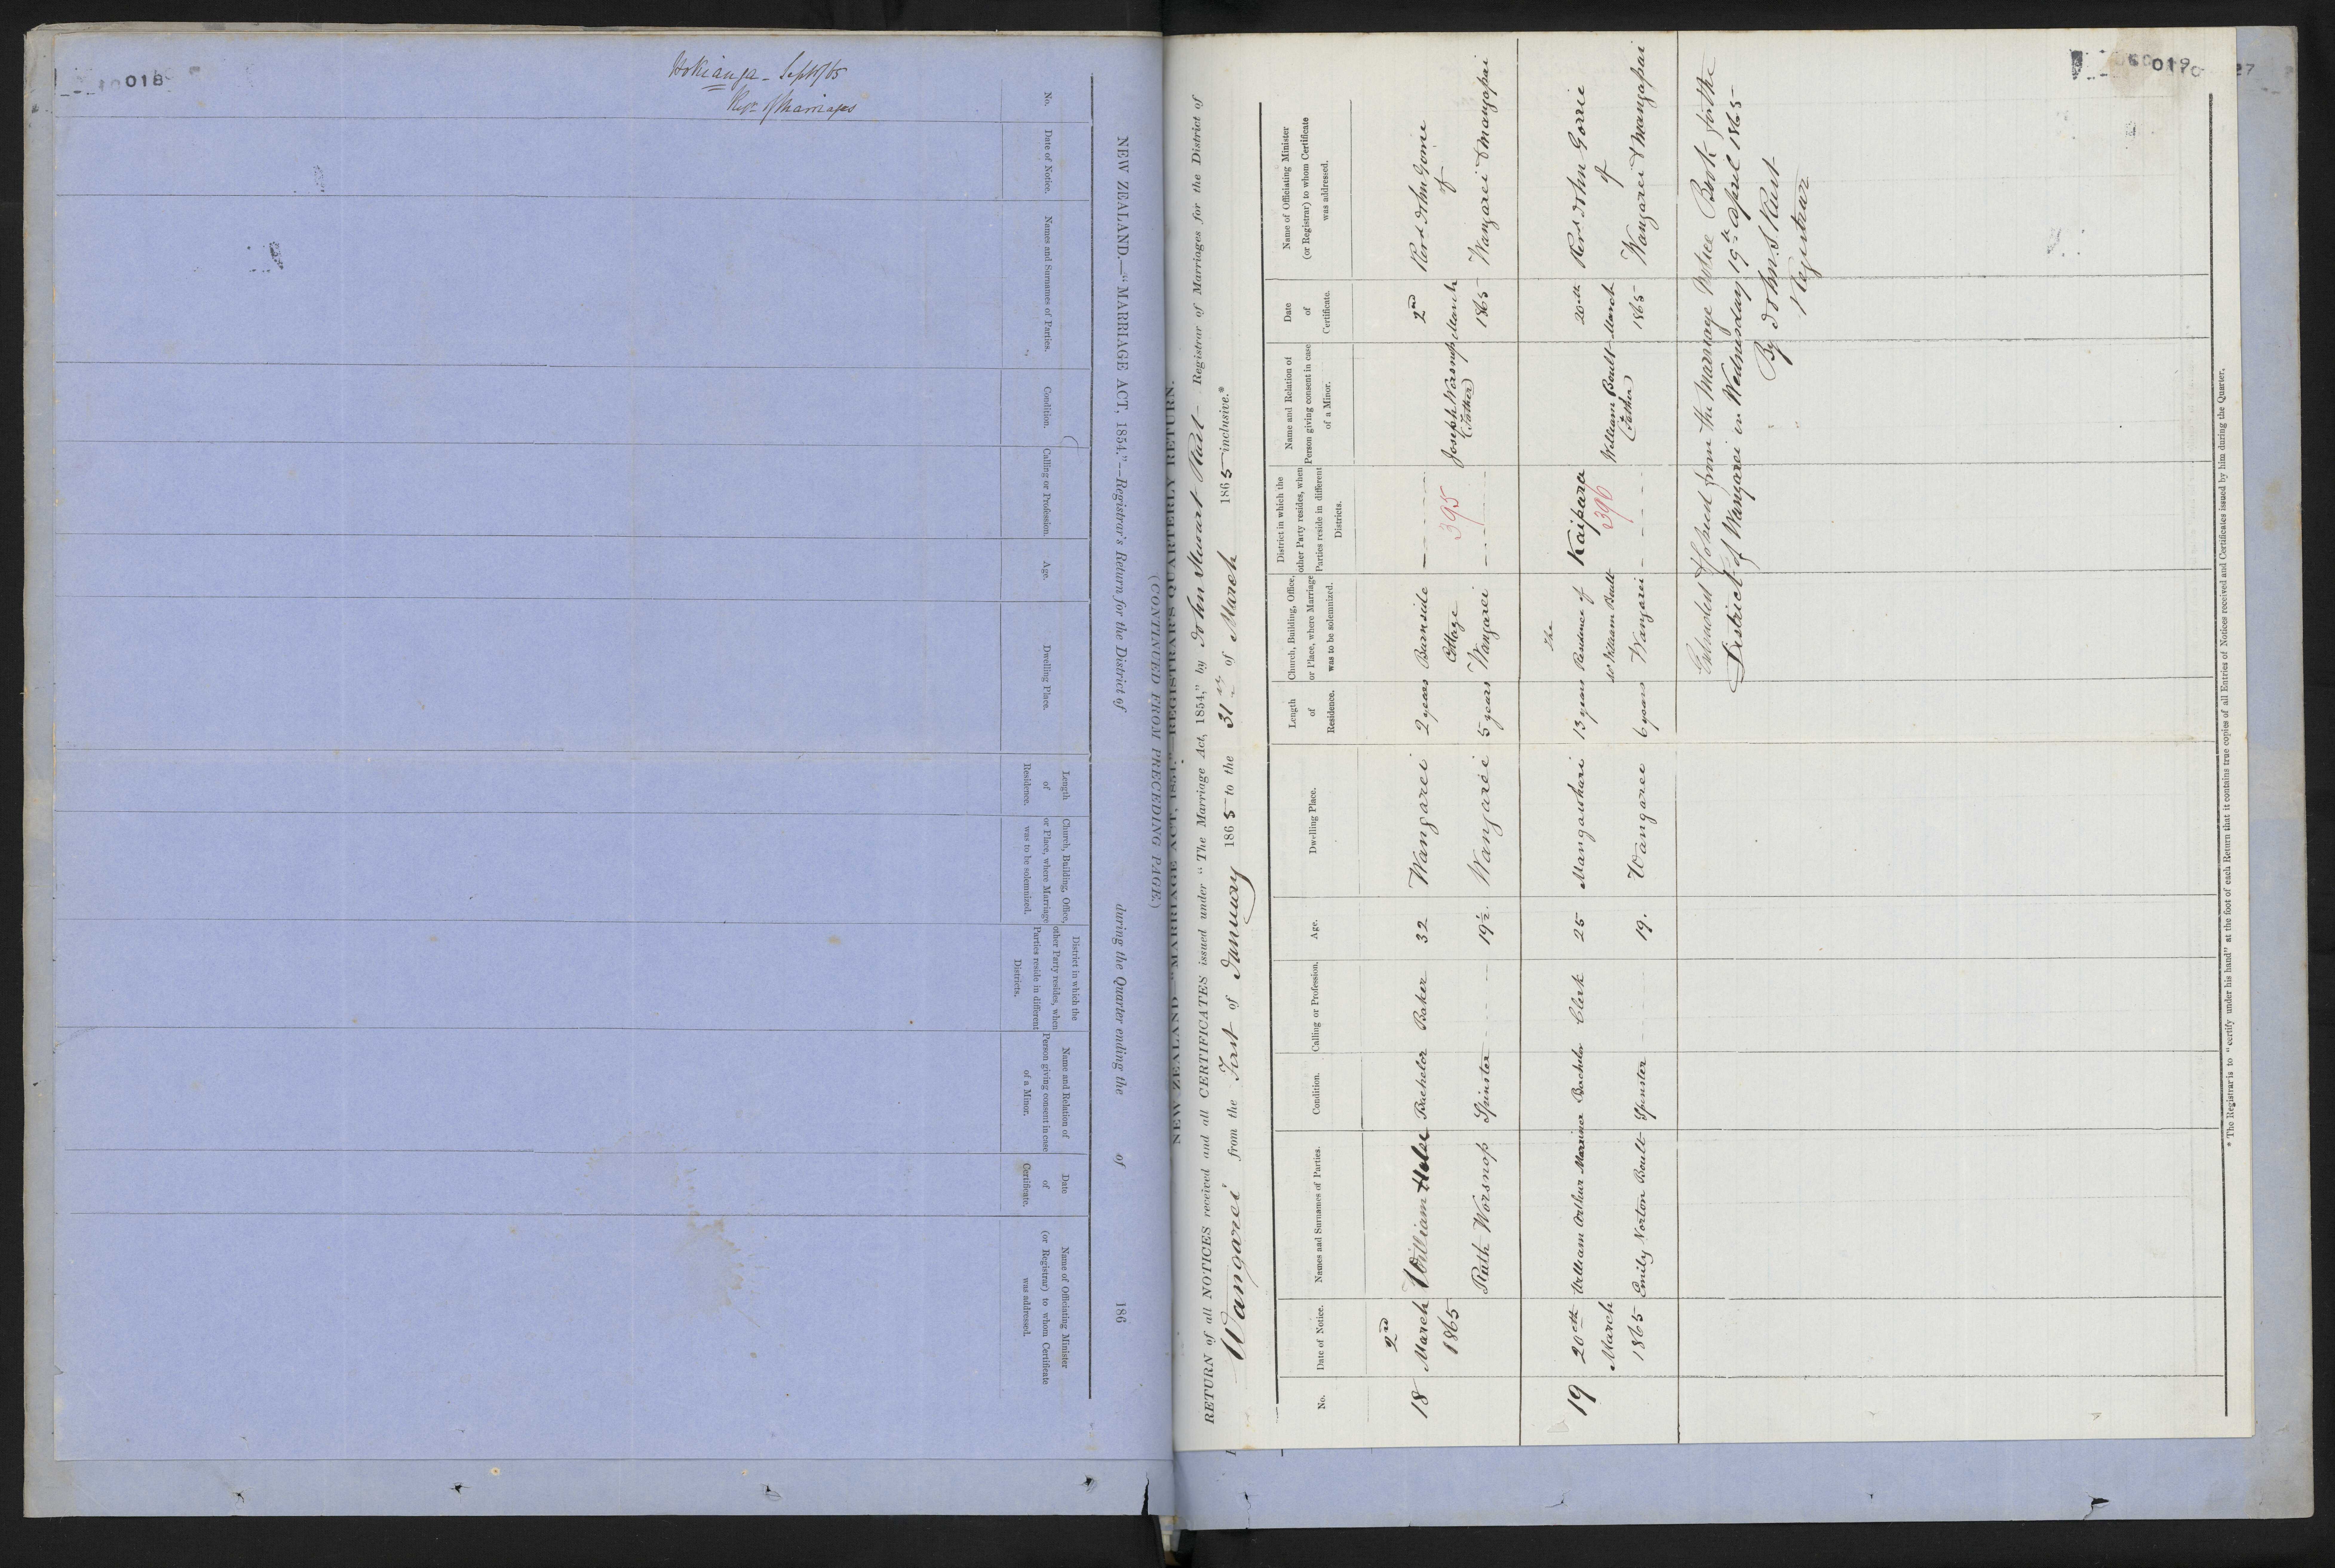 018
Hokianga - Sept/65
Rev. of Marriages
(CONTINUED FROM PRECEDING PAGE.)
NEW ZEALAND.—"MARRIAGE ACT, 1854."—Registrar's Return for the District of during the Quarter ending the of 186
No.
Date of Notice.
Names and Surnames of Parties.
Condition.
Calling or Profession.
Age.
Dwelling Place.
Length
of
Residence.
Church, Building, Office,
or Place, where Marriage
was to be solemnized.
District in which the
other Party resides, when
Parties reside in different
Districts.
Name and Relation of
Person giving consent in case
of a Minor.
Date
of
Certificate.
Name of Officiating Minister
(or Registrar) to whom Certificate
was addressed.
019
27
NEW ZEALAND "MARRIAGE ACT, 1854." REGISTRAR'S QUARTERLY RETURN.
RETURN of all NOTICES received and all CERTIFICATES issued under "The Marriage Act, 1854," by John Stuart Rust Registrar of Marriages for the District of
Wangarei from the First of January 1865 to the 31st of March 1865 inclusive.*
No.
Date of Notice.
Names and Surnames of Parties.
Condition.
Calling or Profession.
Age.
Dwelling Place.
Length
of
Residence.
Church, Building, Office,
or Place, where Marriage
was to be solemnized.
District in which the
other Party resides, when
Parties reside in different
Districts.
Name and Relation of
Person giving consent in case
of a Minor.
Date
of
Certificate.
Name of Officiating Minister
(or Registrar) to whom Certificate
was addressed.
18
2nd
March
1865
William
Ruth Worsnop
Bachelor
Spinster
Baker
32
19½.
Wangarei
Wangarei
2 years
5 years
Burnside
Cottage
Wangarei
395
Joseph Worsnop
(Father)
2nd
March
1865
Revd John Gorrie
of
Wangarei & Mangapai
19
20th
March
1865
William Arthur Marriner
Emily Norton Boult
Bachelor
Spinster
Clerk
25
19.
Mangawhari
Wangarei
13 years
6 years
The
Residence of
Mr William Boult
Wangarei
Kaipara
396
William Boult
(Father)
20th
March
1865
Revd John Gorrie
of
Wangarei & Mangapai
Extended & Copied from the Marriage Notice Book for the
District of Wangarei on Wednesday 19th April 1865
By John S Rust
Registrar
* The Registrar is to "certify under his hand" at the foot of each Return that it contains true copies of all Entries of Notices received and Certificates issued by him during the Quarter.